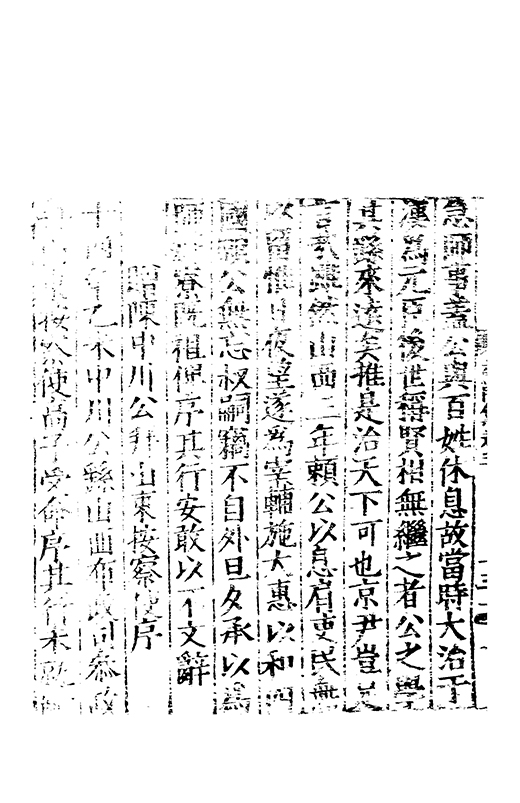 急師事蓋公與百姓休息故當時大治于
漢爲元臣後世稱賢相無繼之者公之學
其繇來遠矣推是治天下可也京尹豈足
言哉雖然山西二年賴公以息肩吏民無
以留惟日夜望遂爲宰輔施大惠以和四
國願公無忘叔嗣竊不自外旦夕承以爲
師 寮既祖俾序其行安敢以不文辭
贈陳中川公拜山東按察使序
十四年乙未中川公繇山西布政司參政
按察使 子受命序其行未